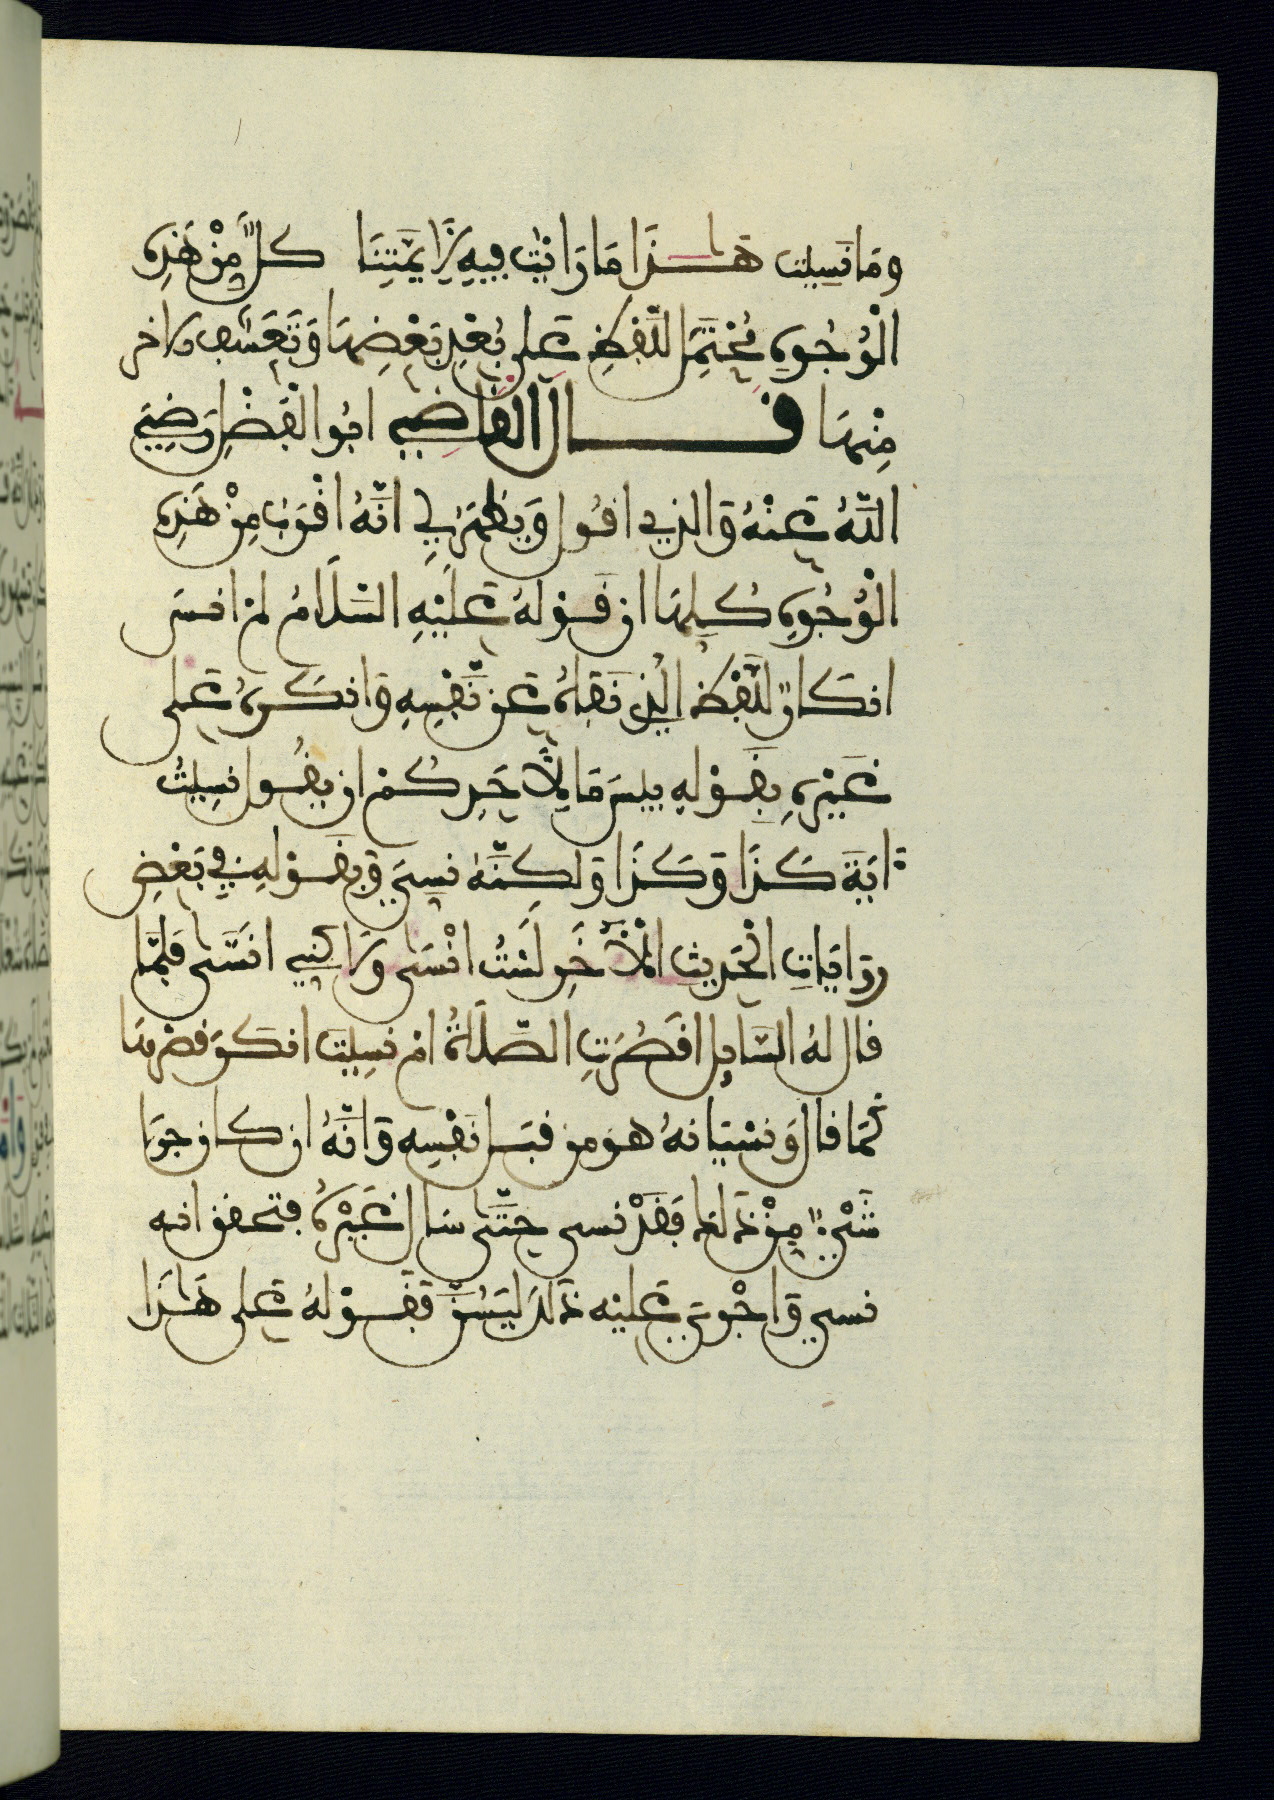 وَمَا نَسِيتُ هَٰذَا مَا رَأَيْتُ فِيهِ لِأَئِمَّتِنَا كُلٌّ مِنْ هَذِهِ
الْوُجُوهِ مُحْتَمِلُ اللَّفْظِ عَلَى بُعْدِ بَعْضِهَا وَتَعَسُّفِ الاخر
مِنْهَا قال القاضي ابُو الْفَضْلِ رَضِيَ
اللَّهُ عَنْهُ وَالذِي اقُولُ وَيَظْهَرُ لِي انَّهُ اقْرَبُ مِنْ هَذِهِ
الْوُجُوهِ كُلِّهَا ان قَوْلَهُ عَلَيْهِ السَّلَامُ لم انسَ
انكارٌ لِلَّفْظِ الذِي نَفَاهُ عَن نَّفْسِهِ وَانكَرَهُ عَلَى
غَيْرِهِ بِقَوْلِهِ بِيسَ مَا لِأَحَدِكُمْ ان يقُولَ نَسِيتُ
ءايَةَ كَذَا وَكَذَا وَلَكِنَّهُ نُسِّيَ وَبِقَوْلِهِ فِي بَعْضِ
رِوَايَاتِ الْحَدِيثِ الْأَخَرِ لَسْتُ انْسَى وَلَاكِنِّي انَسَّى فَلَمَّا
قال لهُ السَّايِلُ اقَصُرَتِ الصَّلَاةُ امْ نَسِيتَ انكَرَ قصْرهَا
كَمَا كانَ وَنِسْيَانهُ هو من قِبَلِ نَفْسِهِ وَانَّهُ ان كان جرَا
شَيْءٌ مِنْ ذَلِكَ فَقَدْ نسى حَتَّى سَالَ غَيْرَهُ فتحقق انه
نسي وَاجْرِيَ عَلَيْهِ ذَلِكَ لِيَسُنَّ فَقَوْلهُ عَلَى هَٰذَا